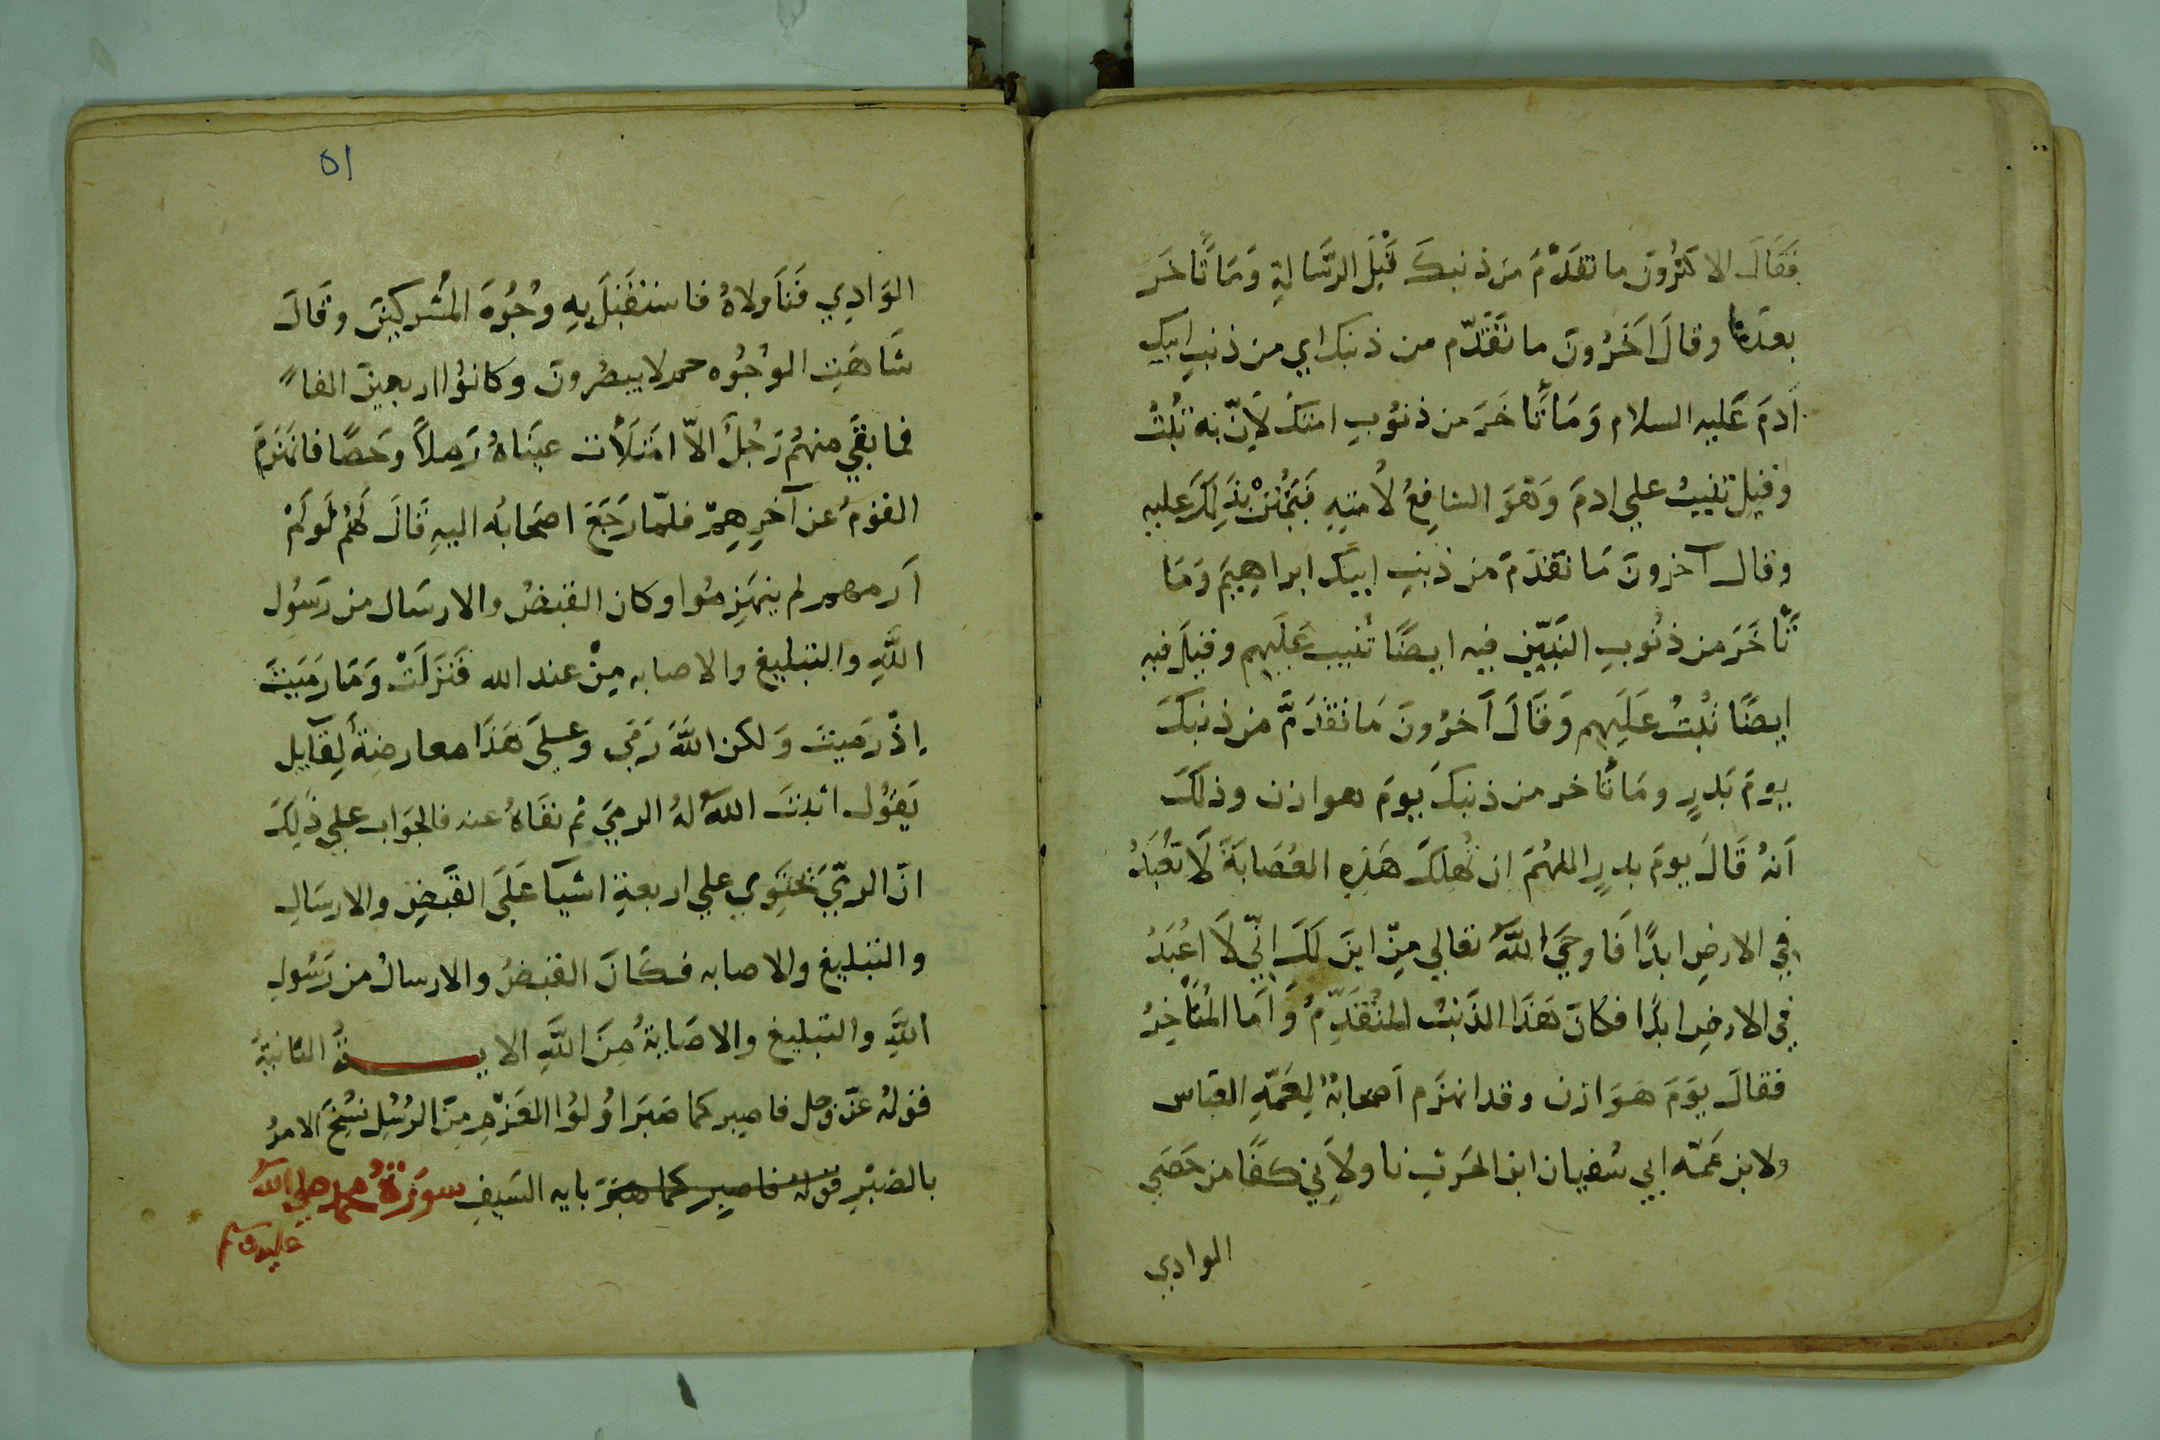 فَقَالَ الاكثرُونَ ما تقدَّمَ من ذنبكَ قَبْلَ الرسَالةِ وَمَا تَأخَر
بعدَها وقالَ اَخَرُونَ ما تَقَدّم من ذنبك اي من ذنبِ ابيك
اَدمَ عَليه السلام وَمَا تَأخَرَ من ذنوُبِ امتكَ لأنّ به تُبْتُ
وقيل تغيبُ علي ادمَ وَهوَ الشافِعُ لأمتِهِ فيَمْتَنُّ بذَلِكَ عليه
وقال آخرونَ مَا تقدَمَ من ذنبِ ابيكَ ابراهِيمَ وَمَا
تَأخَرَ من ذنُوبِ النَبيّين فبه ايضًا تُبتُ عَلَيهم وقيلَ فبه
ايضًا تُبْتُ عَلَيهم وَقَالَ آخرُونَ مَا تقدَمَّ من ذنبكَ
يومَ بَدرٍ ومَا تأخر من ذنبكَ يومَ هوازن وذلكَ
اَنهُ قَالَ يومَ بدرٍ اللهُمَ ان تُهلكَ هَذِهِ العُصَابَةَ لَا تُعْبَدُ
في الارضِ ابدًا فَاوحَيَ اللَّهُ تعالي مِنْ اينَ لَكَ انِّي لَا اعُبَدُ
في الارضِ ابدًا فكانَ هَذا الذَنبُ المتُقَدِّمُ وَاَما المُتَأخِرُ
فقالَ يوَمَ هَوَازن وقد انهزَم اَصحابهُ لِعَمّهِ العَباس
ولابن عَمّه ابي سُفيان ابن الحَرثِ ناولَانِي كفًا من حَصَي
الوادي
٥١
الوَادِي فَنَاَولَاهُ فاستَقَبَلَ بِهِ وجُوُهَ المُشركينَ وقَالَ
شَاهَتِ الوُجُوُه حم لا يبصُرونَ وكانوُا اربعينَ الفاً
فما بَقيَ منهُم رَجُلٌ الاّ امَتلَأت عَينَاهُ رَملاً وحَصًا فانهَزَمَ
القومُ عن آخرِهِمْ فلمّا رَجَعَ اصَحابُه اليهِ قَالَ لَهُمْ لَو لَمْ
اَرمهم لم ينهَزِموُا وكان القَبضُ والارسَال من رَسوُل
اللَّهِ والتبليغ والاصابه مِنْ عند الله فَنَزَلَتْ وَمَا رَمَيتَ
اِذْ رَميتَ وَلكن اللَّهَ رَمَي وعلَيَ هَذَا معارضةٌ لِقَايل
يَقوُل اثبتَ اللهُ لهُ الرميَ ثم نفَاهُ عنه فالجَواب علي ذَلِكَ
انّ الرميَ يَحتَوي علي اربعةِ اشيآ عَلَيَ القَبَضِ والارسَالِ
والتبليغ والاصابه فكَانَ القبَضُ والارسالُ من رَسُولِ
اللَّهِ والتبليغ والاصَابةُ مِنَ اللَّهِ الايـــةُ الثانيةُ
قولهُ عَزّ وجل فاصبر كما صَبَرَ اوُلوُا العَزْمِ مِنَ الرُسُلِ نسُخَ الامرُ
بالصَبْرِ قوله فاصبر كما صبَرَ بايه السَيفِ سورةُ محمد صلي الله
عليه وسلم